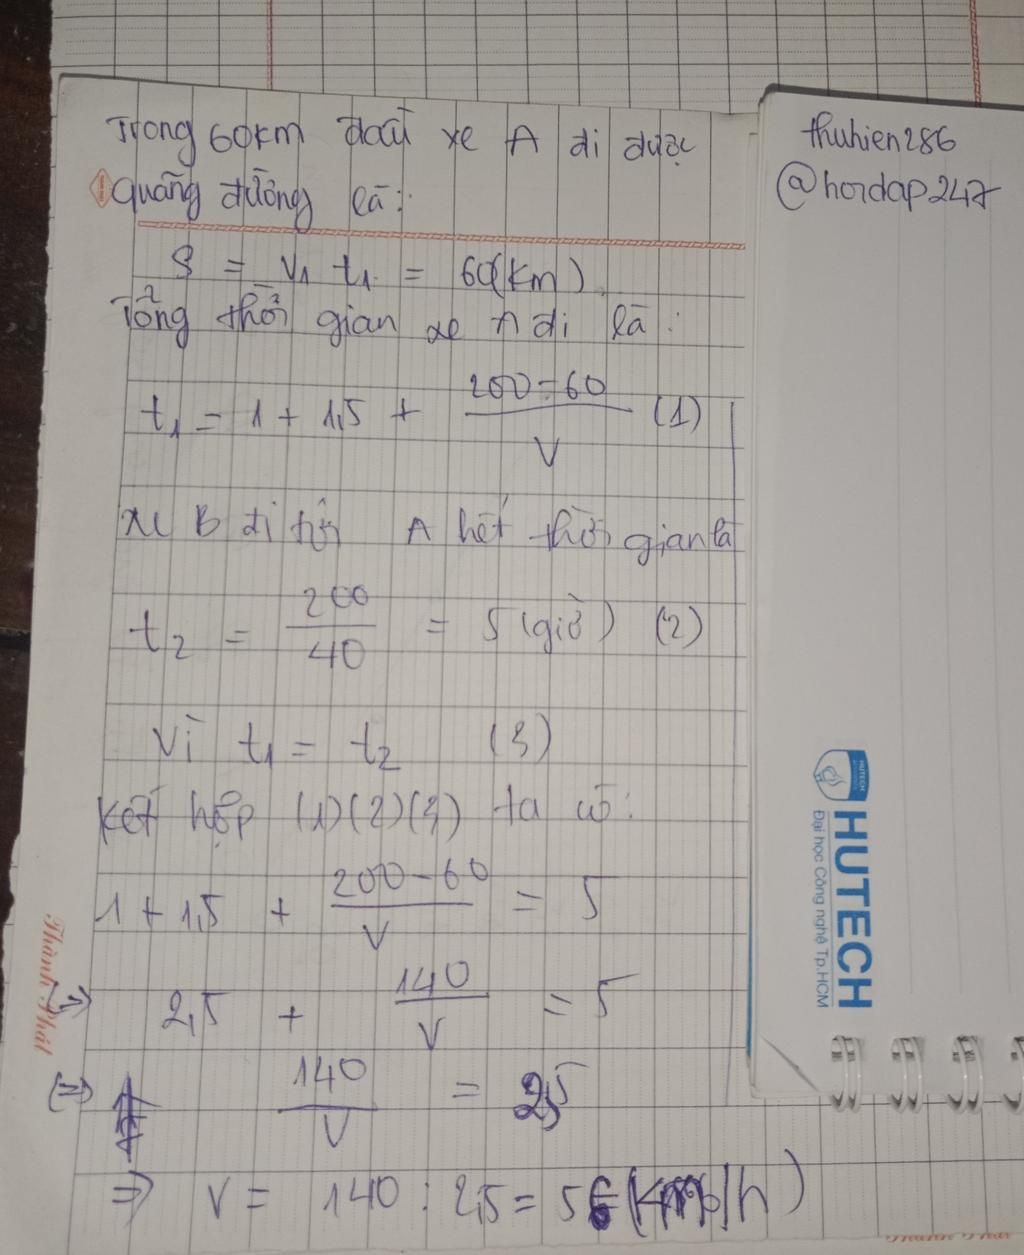 Trong 60km đầu xe A đi được
quãng đường là:
S = V1 t1 = 60(km)
Tổng thời gian xe A đi là:
t1 = 1 + 1,5 + (200-60)/V (1)
xe B đi tới A hết thời gian là
t2 = 200/40 = 5 (giờ) (2)
Vì t1 = t2 (3)
Kết hợp (1)(2)(3) ta có:
1 + 1,5 + (200-60)/V = 5
=> 2,5 + 140/V = 5
(=) 140/V = 2,5
=> V = 140 : 2,5 = 56 (km/h)
thuhien286
@hoidap247
HUTECH
Đại học Công nghệ Tp.HCM
HUTECH
Thành Phát